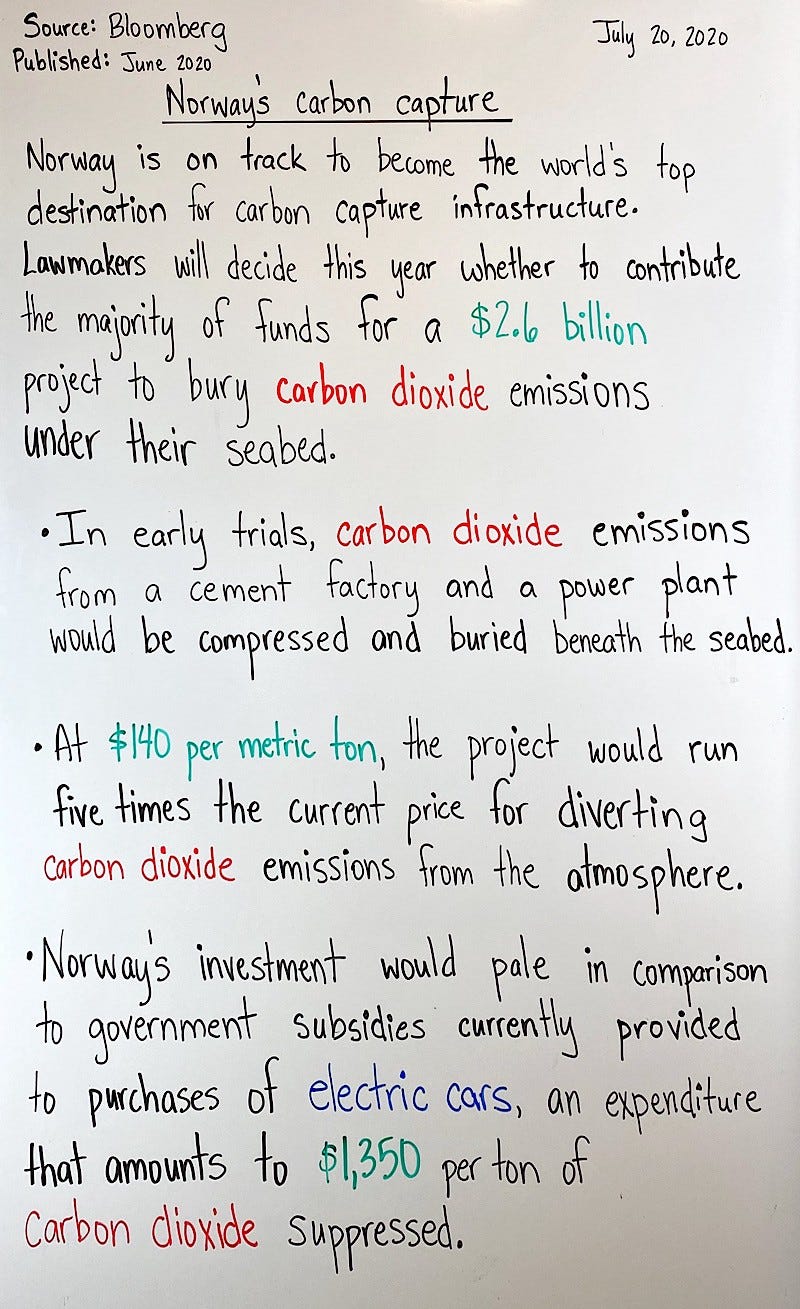 Source: Bloomberg
July 20, 2020
Published: June 2020
Norway's carbon capture
Norway is on track to become the world's top
destination for carbon capture infrastructure.
Lawmakers will decide this year whether to contribute
the majority of funds for a $2.6 billion
project to bury carbon dioxide emissions
under their seabed.
• In early trials, carbon dioxide emissions
from a cement factory and a power plant
would be compressed and buried beneath the seabed.
• At $140 per metric ton, the project would run
five times the current price for diverting
carbon dioxide emissions from the atmosphere.
• Norway's investment would pale in comparison
to government subsidies currently provided
to purchases of electric cars, an expenditure
that amounts to $1,350 per ton of
carbon dioxide suppressed.